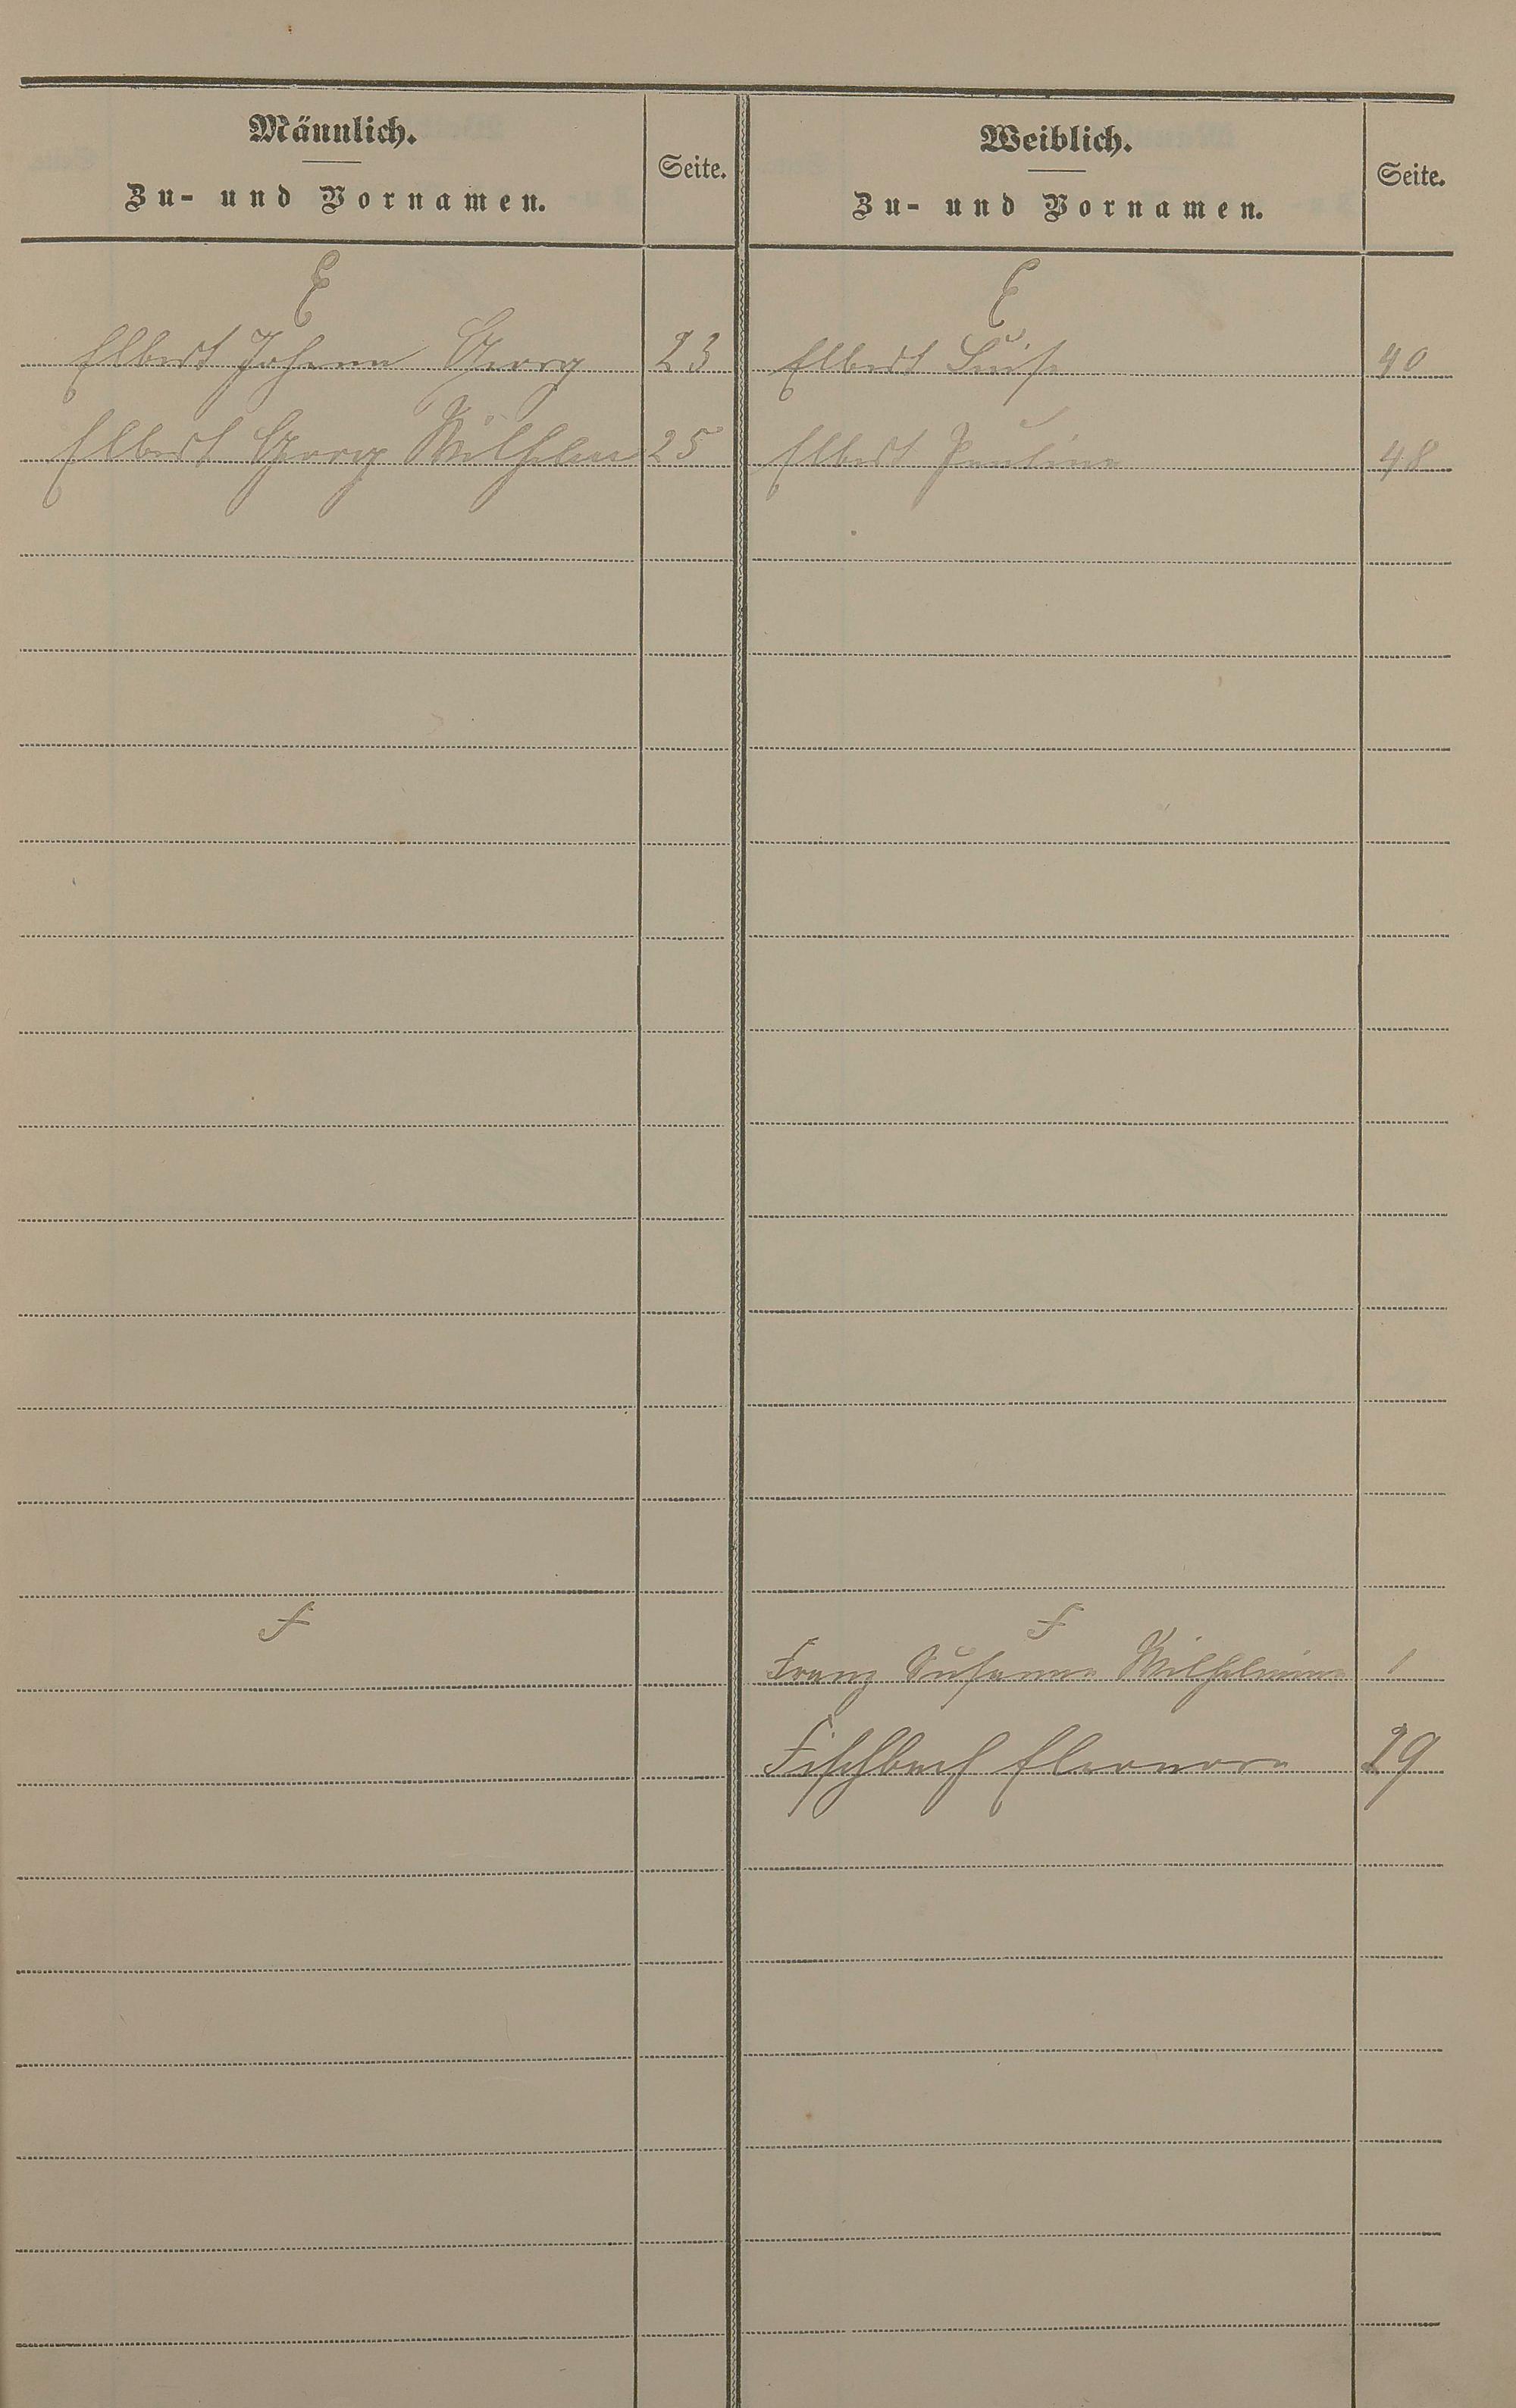 Männlich.
Zu- und Vornamen.
Seite.
Weiblich.
Zu- und Vornamen.
Seite.
E
Elbert Johann Georg 23
Elbert Georg Wilhelm 25
E
Elbert Luise 40
Elbert Pauline 48
F
F
Franz Susanna Wilhelmine 1
Fischbach Eleonore 29